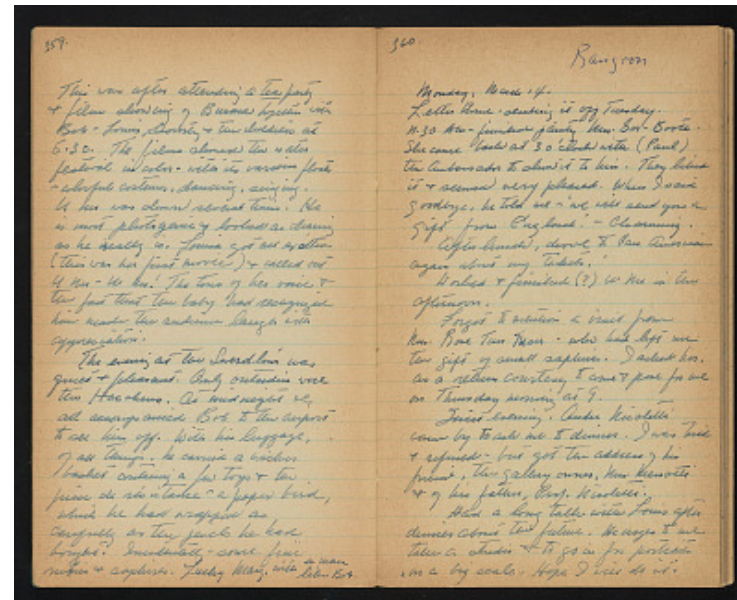 359.
This was after attending a tea party
& film showing of Burma together with
Bob - Louis, Dorothy & the children at
6.30. The films showed the water
festival in color - with its various floats
- colorful costumes, dancing, singing.
U Nu was shown several times. He
is most photogenic & looked as charming
as he really is. Louisa got all excited
(this was her first movie) & called out
U Nu - U Nu. The tone of her voice &
the fact that the baby had recognized
him made the audience laugh with
appreciation.
The evening at the was
quiet & pleasant. Only outsiders were
the . At midnight we
all accompanied Bob to the airport
to see him off. With his luggage,
of all things, he carried a wicker
basket containing a few toys & the
piece de resistance - a paper bird,
which he had wrapped as
carefully as the jewels he had
bought. Incidentally - some fine
rubies & sapphires. Lucky Mary, with a man
like Bob.
360.
Rangoon
Monday, March 14.
Letter home - sending it off Tuesday.
11.30 Mrs. - finished painting Mrs. Gore-Booth.
She came back at 3 o'clock with (Paul)
the Ambassador to show it to him. They liked
it & seemed very pleased. When I said
goodbye, he told me - "we will send you a
gift from England." - Charming.
After lunch, drove to Pan American
again about my ticket.
Worked & finished (?) U Nu in the
afternoon.
Forgot to mention a visit from
Mrs. - who had left me
the gift of small sapphires. I asked her,
as a return courtesy to come & pose for me
on Thursday morning at 9.
This evening. Nicoletti
came by to ask me to dinner. I was tired
& refused - but got the address of his
friend, the gallery owner,
& of his father, Prof. Nicoletti.
Had a long talk with Louis after
dinner about the future. He urges to me
take a studio & to go in for portraits
on a big scale. Hope I will do it.